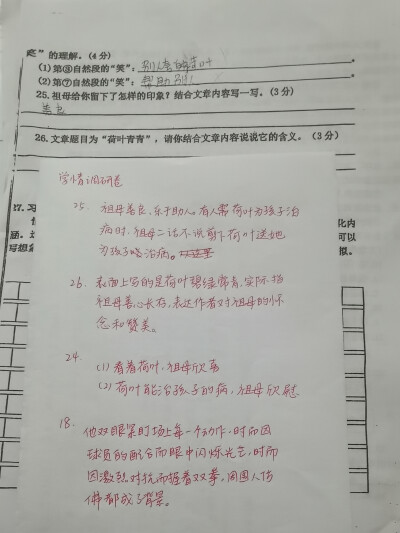 ”的理解。(4分)
(1)第③自然段的“笑”:
(2)第⑦自然段的“笑”:帮助别人
25.祖母给你留下了怎样的印象?结合文章内容写一写。(3分)
善良
26.文章题目为“荷叶青青”,请你结合文章内容说说它的含义。(3分)
学情调研卷
25. 祖母善良、乐于助人。有人帮荷叶为孩子治
病时,祖母二话不说剪下荷叶送她
为孩子晓治病。
26. 表面上写的是荷叶碧绿常青,实际指
祖母善心长存,表达作者对祖母的怀
念和赞美。
24.
(1)看着荷叶,祖母欣
(2)荷叶能治孩子的病,祖母欣慰
18. 他双眼紧盯场上每一个动作,时而因
球员的配合而眼中闪烁光芒,时而
因激烈对抗而握着双拳,周围人仿
佛都成了背景。
27.
化内
可以
写想